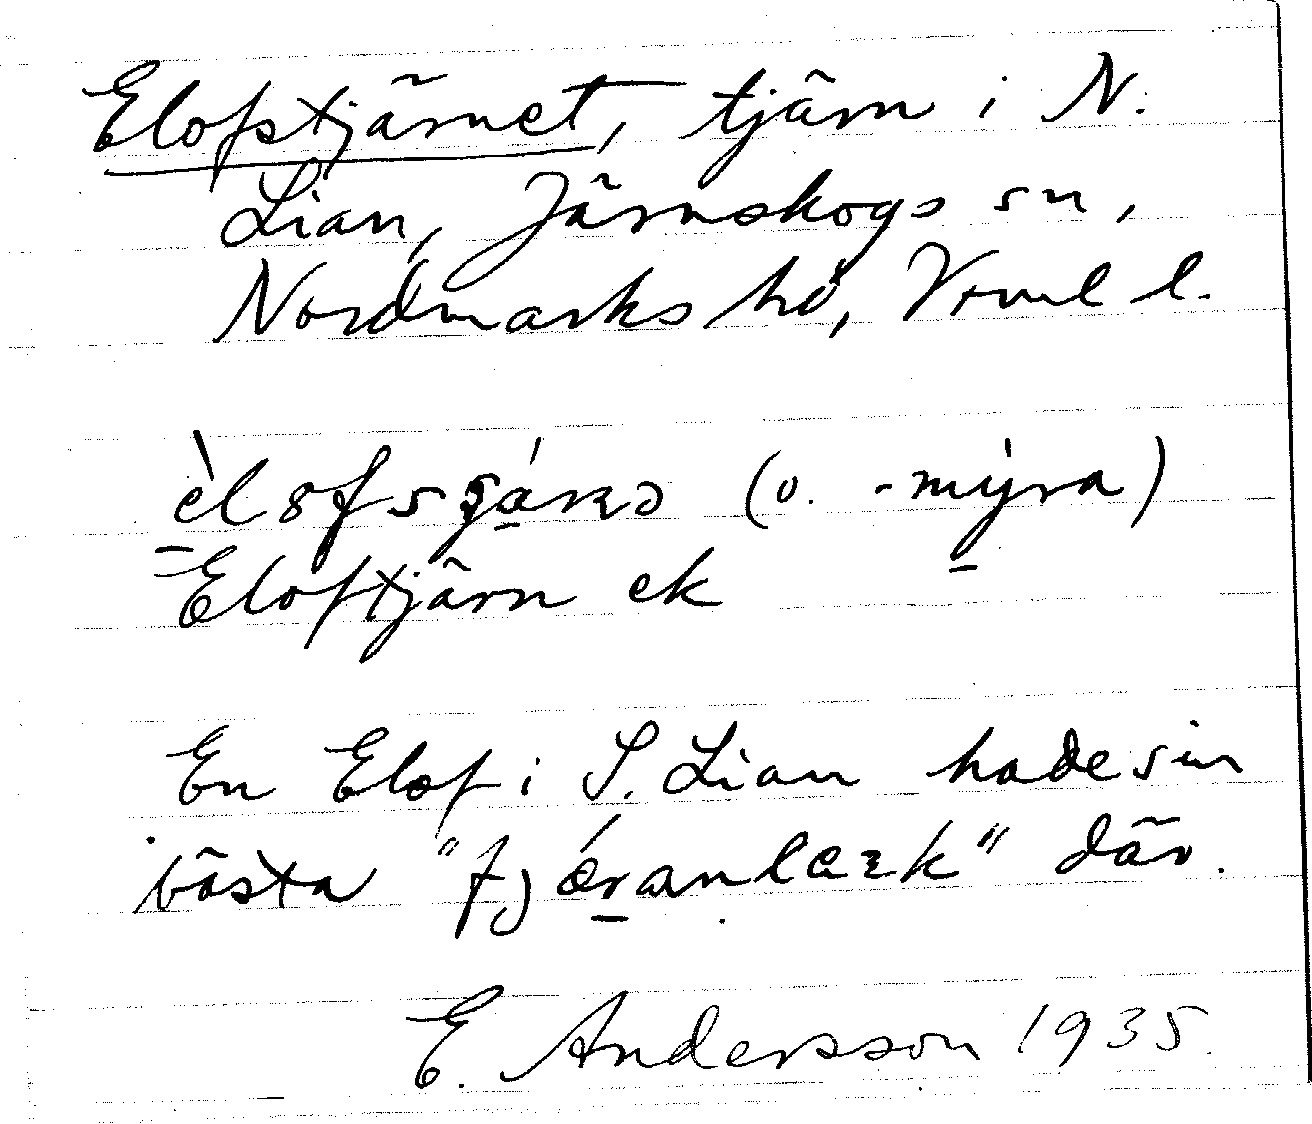 Elofstjärnet, tjärn i N.
Lian, Järnskogs sn,
Nordmarks hd, Vrml l.
(o. -myra)
Eloftjärn ek
En Elof i S. Lian hade sin
bästa "fjæranlæk" där.
E. Andersson 1935.